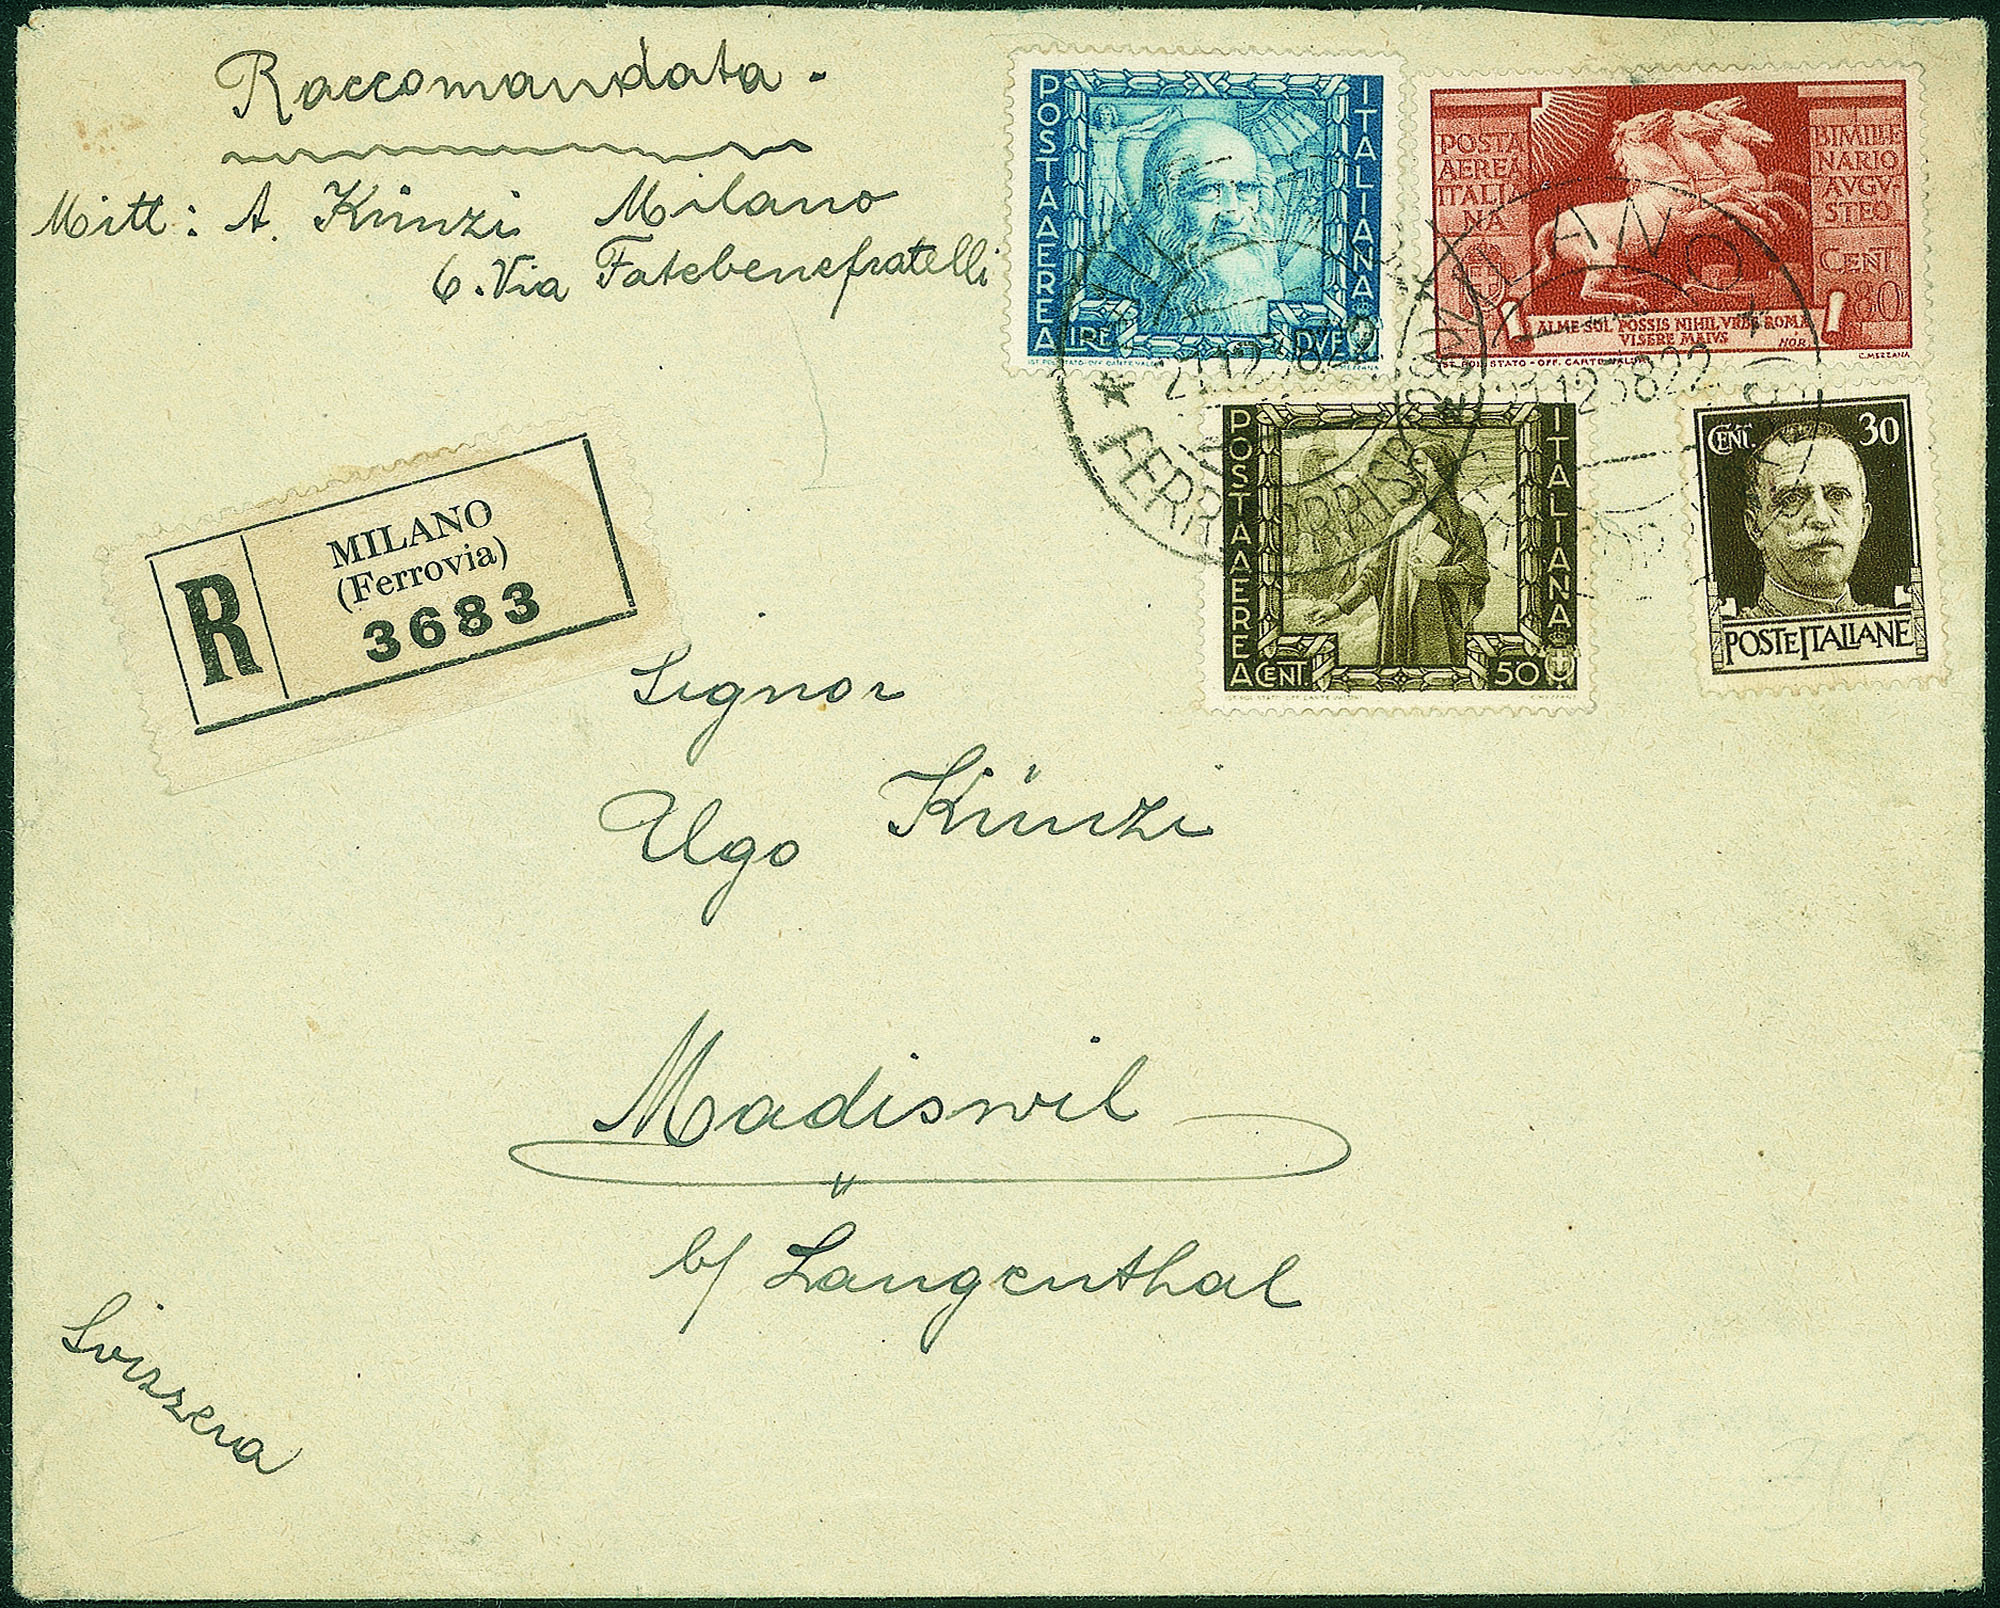 Raccomandata.
Mitt: A. Künzi Milano
6. Via Fatebenefratelli
POSTA AEREA
ITALIANA
LIRE DVE
POSTA
AEREA
ITALIA
NA
BIMILLE
NARIO
AVGV-
STEO
CENT
80
ALME SOL POSSIS NIHIL VRBE ROMA
VISERE MAIVS
HOR.
C. MEZZANA
MILANO
FERR
MILANO
POSTA AEREA
ITALIANA
CENT. 50
CENT. 30
POSTE ITALIANE
R
MILANO
(Ferrovia)
3683
Signor
Ugo Künzi
Madiswil
b/ Langenthal
Svizzera